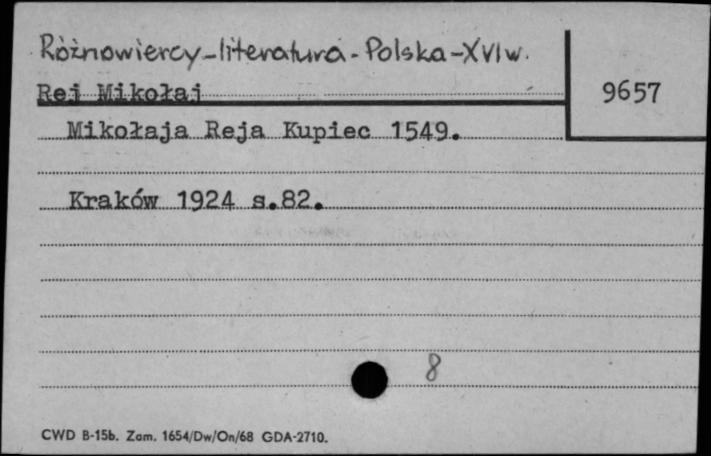 Różnowiercy-literatura-Polska-XVIw.
Rej Mikołaj
9657
Mikołaja Reja Kupiec 1549.
Kraków 1924 s.82.
8
CWD B-15b. Zam. 1654/Dw/On/68 GDA-2710.